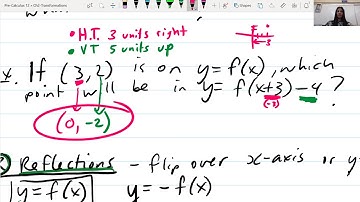 Pre-Calculus 12 • Ch1 Transformations
• H.T. 3 units right
• VT 5 units up
x. If (3, 2) is on y = f(x), which
point will be in y = f(x+3) - 4 ?
(-3)
(0, -2)
Reflections - flip over x-axis or y-
y = f(x) y = -f(x)